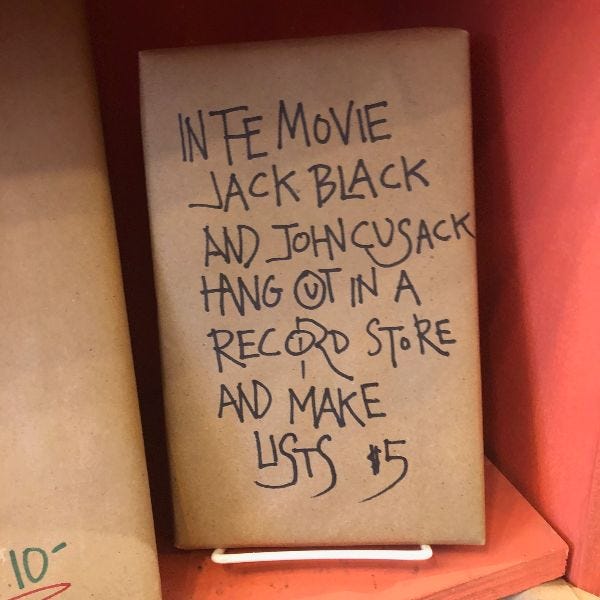 IN THE MOVIE
JACK BLACK
AND JOHN CUSACK
HANG OUT IN A
RECORD STORE
AND MAKE
LISTS $5
10-